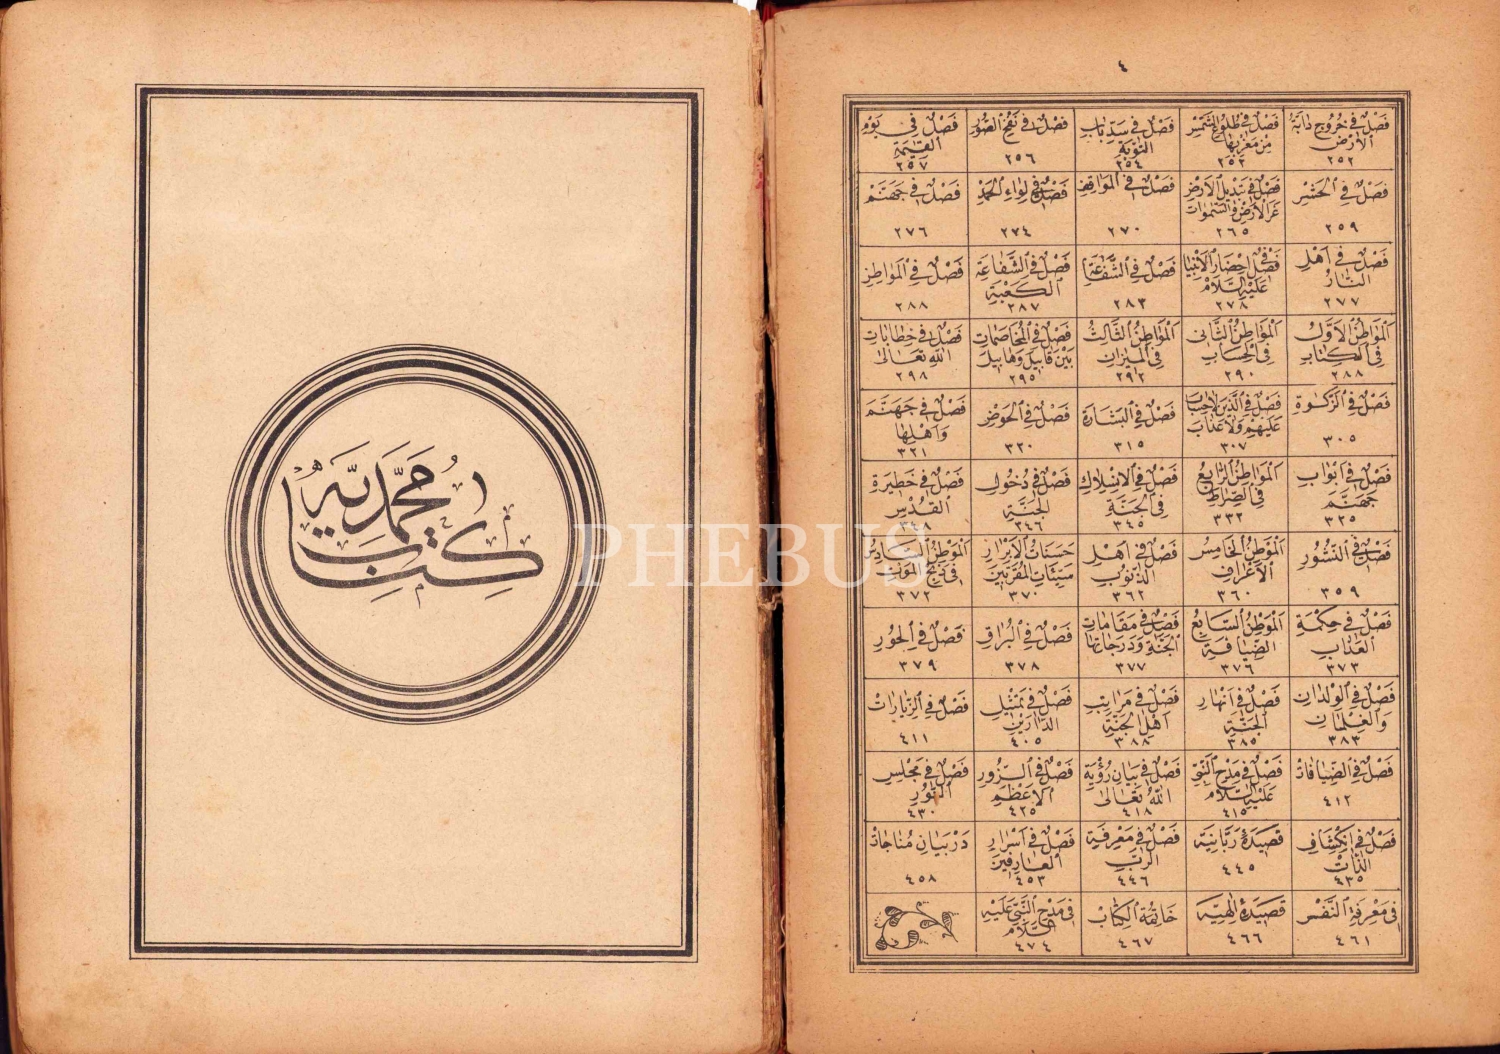 ٤
فصل في خروج دابة الأرض ٢٥٢
فصل في طلوع الشمس من مغربها ٢٥٣
فصل في سد باب التوبة ٢٥٤
فصل في نفخ الصور ٢٥٦
فصل في يوم القيمة ٢٥٧
فصل في الحشر ٢٥٩
فصل في تبديل الأرض غير الأرض والسموات ٢٦٥
فصل في المواقف ٢٧٠
فصل في لواء الحمد ٢٧٤
فصل في جهنم ٢٧٦
فصل في اهل النار ٢٧٧
فصل في احضار الأنبيا عليه السلام ٢٧٨
فصل في الشفاعة ٢٨٣
فصل في الشفاعة الكعبة ٢٨٧
فصل في المواطن ٢٨٨
المواطن الاول في الكتاب ٢٨٨
المواطن الثانى في الحساب ٢٩٠
المواطن الثالث في الميزان ٢٩٢
فصل في المخاصمات بين قابيل وهابيل ٢٩٥
فصل في خطابات الله تعالى ٢٩٨
فصل في الزكوة ٣٠٥
فصل في الذين لاحساب عليهم ولا عذاب ٣٠٧
فصل في البشارة ٣١٥
فصل في الحوض ٣٢٠
فصل في جهنم واهلها ٣٢١
فصل في ابواب جهنم ٣٢٥
المواطن الرابع في الصراط ٣٣٢
فصل في الانسلاك في الجنة ٣٤٥
فصل في دخول الجنة ٣٤٦
فصل في خطيرة القدس ٣٤٨
فصل في النشور ٣٥٩
الموطن الخامس الاعراف ٣٦٠
فصل في اهل الذنوب ٣٦٢
حسنات الابرار سيئات المقربين ٣٧٠
الموطن السادس في ذبح الموت ٣٧٢
فصل في حكمة العذاب ٣٧٣
الموطن السابع الضيافة ٣٧٦
فصل في مقامات الجنة ودرجاتها ٣٧٧
فصل في البراق ٣٧٨
فصل في الحور ٣٧٩
فصل في الولدان والغلمان ٣٨٣
فصل في انهار الجنة ٣٨٥
فصل في مراتب اهل الجنة ٣٨٨
فصل في تمثيل الدارين ٤٠٥
فصل في الزيارات ٤١١
فصل في الضيافات ٤١٢
فصل في مدح النبي عليه السلام ٤١٥
فصل في بيان رؤية الله تعالى ٤١٨
فصل في الزور الاعظم ٤٢٥
فصل في مجلس النور ٤٣٠
فصل في انكشاف الذات ٤٣٥
قصيدة ربانية ٤٤٥
فصل في معرفة الرب ٤٤٦
فصل في اسرار العارفين ٤٥٣
در بيان مناجات ٤٥٨
في معرفة النفس ٤٦١
قصيدة الهية ٤٦٦
خاتمة الكتاب ٤٦٧
في مدح النبي عليه السلام ٤٧٤
كتاب محمديه
PHEBUS